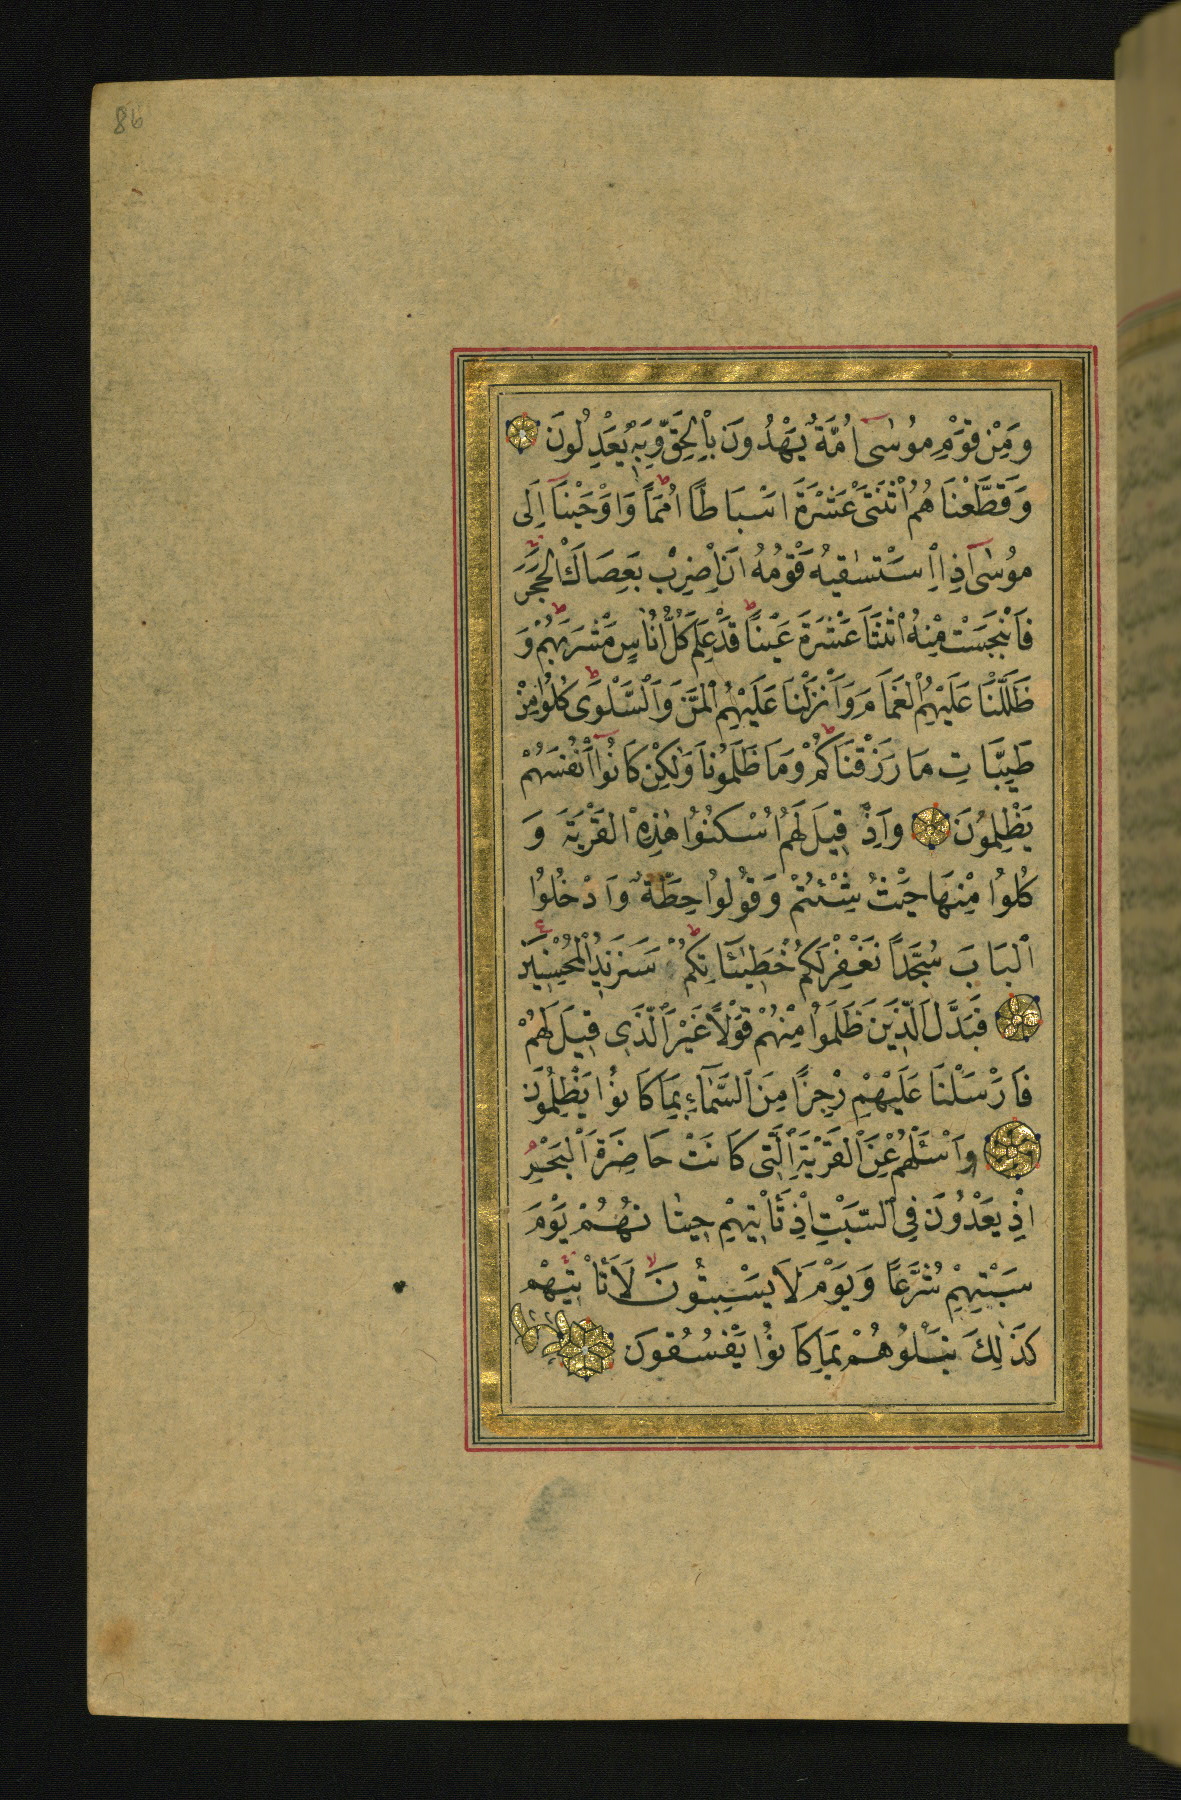 86
وَمِنْ قَوْمِ مُوسٰٓى اُمَّةٌ يَهْدُونَ بِالْحَقِّ وَبِهٖ يَعْدِلُونَ
وَقَطَّعْنَاهُمُ اثْنَتَىْ عَشْرَةَ اَسْبَاطًا اُمَمًا وَاَوْحَيْنَآ اِلٰى
مُوسٰٓى اِذِ اسْتَسْقٰيهُ قَوْمُهُ اَنِ اضْرِبْ بِعَصَاكَ الْحَجَرَ
فَانْبَجَسَتْ مِنْهُ اثْنَتَا عَشْرَةَ عَيْنًا قَدْ عَلِمَ كُلُّ اُنَاسٍ مَشْرَبَهُمْ وَ
ظَلَّلْنَا عَلَيْهِمُ الْغَمَامَ وَاَنْزَلْنَا عَلَيْهِمُ الْمَنَّ وَالسَّلْوٰى كُلُوا مِنْ
طَيِّبَاتِ مَا رَزَقْنَاكُمْ وَمَا ظَلَمُونَا وَلٰكِنْ كَانُوٓا اَنْفُسَهُمْ
يَظْلِمُونَ وَاِذْ قِيلَ لَهُمُ اسْكُنُوا هٰذِهِ الْقَرْيَةَ وَ
كُلُوا مِنْهَا حَيْثُ شِئْتُمْ وَقُولُوا حِطَّةٌ وَادْخُلُوا
الْبَابَ سُجَّدًا نَغْفِرْ لَكُمْ خَطِيٓئَاتِكُمْ سَنَزِيدُ الْمُحْسِنِينَ
فَبَدَّلَ الَّذِينَ ظَلَمُوا مِنْهُمْ قَوْلًا غَيْرَ الَّذِى قِيلَ لَهُمْ
فَاَرْسَلْنَا عَلَيْهِمْ رِجْزًا مِنَ السَّمَآءِ بِمَا كَانُوا يَظْلِمُونَ
وَاسْئَلْهُمْ عَنِ الْقَرْيَةِ الَّتِى كَانَتْ حَاضِرَةَ الْبَحْرِ
اِذْ يَعْدُونَ فِى السَّبْتِ اِذْ تَاْتِيهِمْ حِيتَانُهُمْ يَوْمَ
سَبْتِهِمْ شُرَّعًا وَيَوْمَ لَا يَسْبِتُونَ لَا تَاْتِيهِمْ
كَذٰلِكَ نَبْلُوهُمْ بِمَا كَانُوا يَفْسُقُونَ